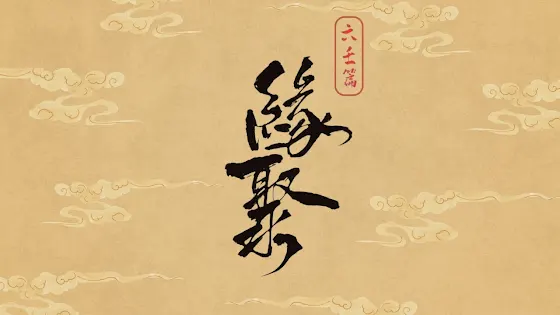 六壬篇
緣聚